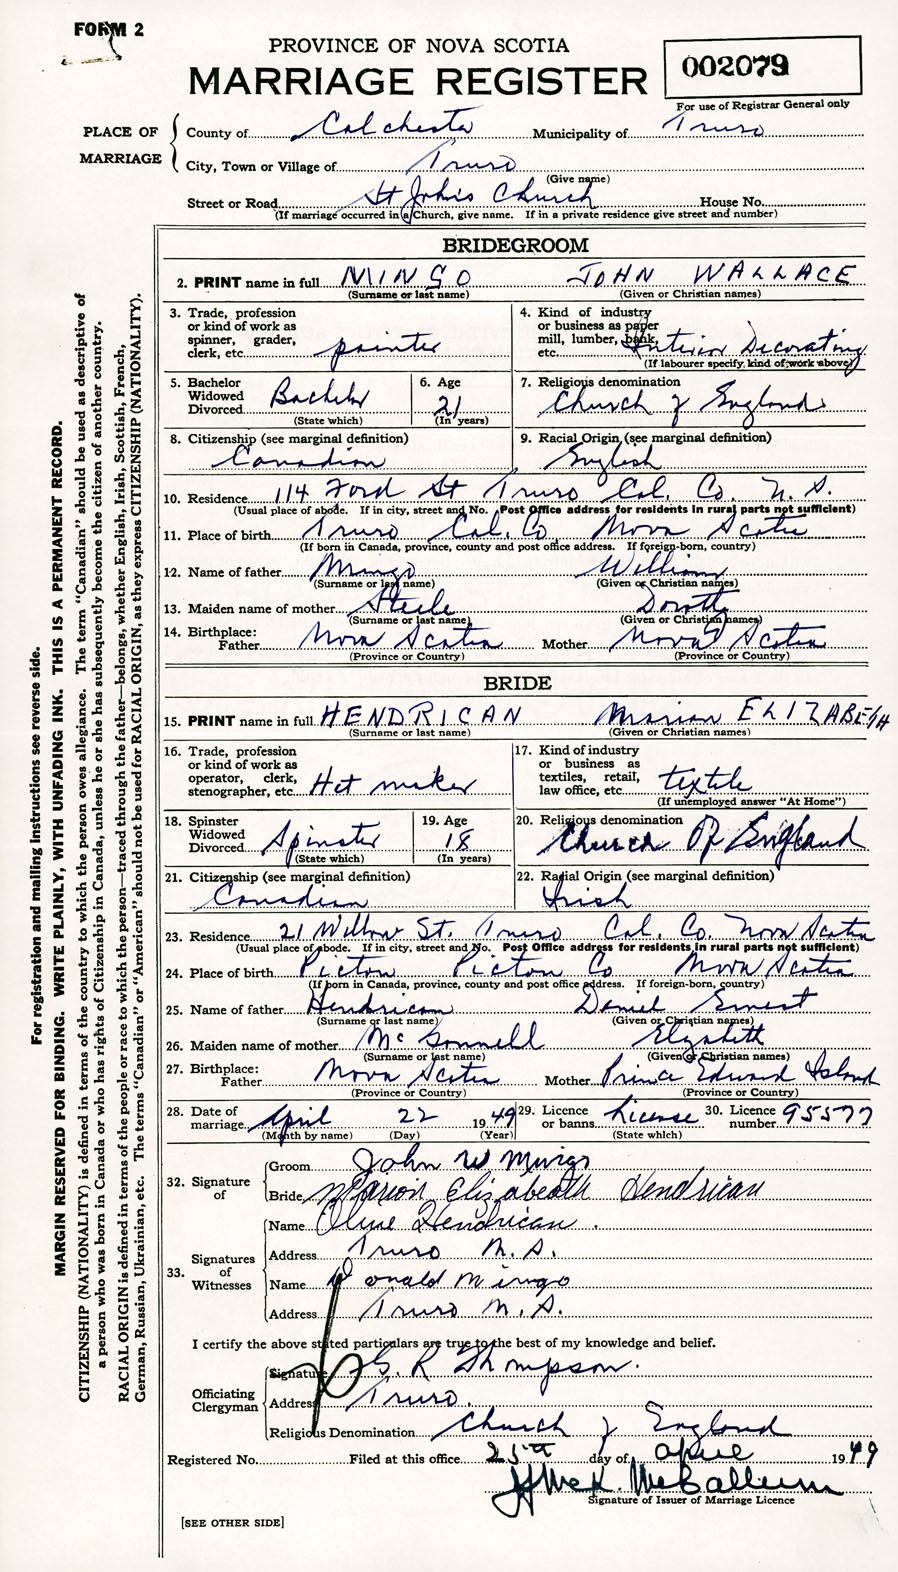 FORM 2
PROVINCE OF NOVA SCOTIA
MARRIAGE REGISTER
002079
For use of Registrar General only
PLACE OF MARRIAGE
County of Colchester Municipality of Truro
City, Town or Village of Truro
(Give name)
Street or Road St John's Church House No.
(If marriage occurred in a Church, give name. If in a private residence give street and number)
BRIDEGROOM
2. PRINT name in full MINGO JOHN WALLACE
(Surname or last name) (Given or Christian names)
3. Trade, profession or kind of work as spinner, grader, clerk, etc. painter
4. Kind of industry or business as paper mill, lumber, bank, etc. Interior Decorating
(If labourer specify kind of work above)
5. Bachelor Widowed Divorced Bachelor
(State which)
6. Age 21
(In years)
7. Religious denomination Church of England
8. Citizenship (see marginal definition) Canadian
9. Racial Origin (see marginal definition) English
10. Residence 114 Ford St Truro Col. Co. N. S.
(Usual place of abode. If in city, street and No. Post Office address for residents in rural parts not sufficient)
11. Place of birth Truro Col. Co Nova Scotia
(If born in Canada, province, county and post office address. If foreign-born, country)
12. Name of father Mingo William
(Surname or last name) (Given or Christian names)
13. Maiden name of mother Steele Dorothy
(Surname or last name) (Given or Christian names)
14. Birthplace: Father Nova Scotia Mother Nova Scotia
(Province or Country) (Province or Country)
BRIDE
15. PRINT name in full HENDRICAN Marion ELIZABETH
(Surname or last name) (Given or Christian names)
16. Trade, profession or kind of work as operator, clerk, stenographer, etc. Hat maker
17. Kind of industry or business as textiles, retail, law office, etc. textile
(If unemployed answer "At Home")
18. Spinster Widowed Divorced Spinster
(State which)
19. Age 18
(In years)
20. Religious denomination Church Of England
21. Citizenship (see marginal definition) Canadian
22. Racial Origin (see marginal definition) Irish
23. Residence 21 Willow St. Truro Col. Co. Nova Scotia
(Usual place of abode. If in city, street and No. Post Office address for residents in rural parts not sufficient)
24. Place of birth Pictou Pictou Co Nova Scotia
(If born in Canada, province, county and post office address. If foreign-born, country)
25. Name of father Hendrican Daniel Ernest
(Surname or last name) (Given or Christian names)
26. Maiden name of mother Elizabeth
(Surname or last name) (Given or Christian names)
27. Birthplace: Father Nova Scotia Mother Prince Edward Island
(Province or Country) (Province or Country)
28. Date of marriage April 22 1949
(Month by name) (Day) (Year)
29. Licence or banns. License
(State which)
30. Licence number. 95577
32. Signature of
Groom John W Mingo
Bride Marion Elisabeath Hendrican
33. Signatures of Witnesses
Name Olive Hendrican.
Address Truro N. S.
Name Donald Mingo
Address Truro N. S.
I certify the above stated particulars are true to the best of my knowledge and belief.
Officiating Clergyman
Signature G. R Thompson.
Address Truro.
Religious Denomination Church of England
Registered No. Filed at this office 25th day of April 1949
McK. McCallum
Signature of Issuer of Marriage Licence
[SEE OTHER SIDE]
For registration and mailing instructions see reverse side.
MARGIN RESERVED FOR BINDING. WRITE PLAINLY, WITH UNFADING INK. THIS IS A PERMANENT RECORD.
CITIZENSHIP (NATIONALITY) is defined in terms of the country to which the person owes allegiance. The term "Canadian" should be used as descriptive of
a person who was born in Canada or who has rights of Citizenship in Canada, unless he or she has subsequently become the citizen of another country.
RACIAL ORIGIN is defined in terms of the people or race to which the person—traced through the father—belongs, whether English, Irish, Scottish, French,
German, Russian, Ukrainian, etc. The terms "Canadian" or "American" should not be used for RACIAL ORIGIN, as they express CITIZENSHIP (NATIONALITY).